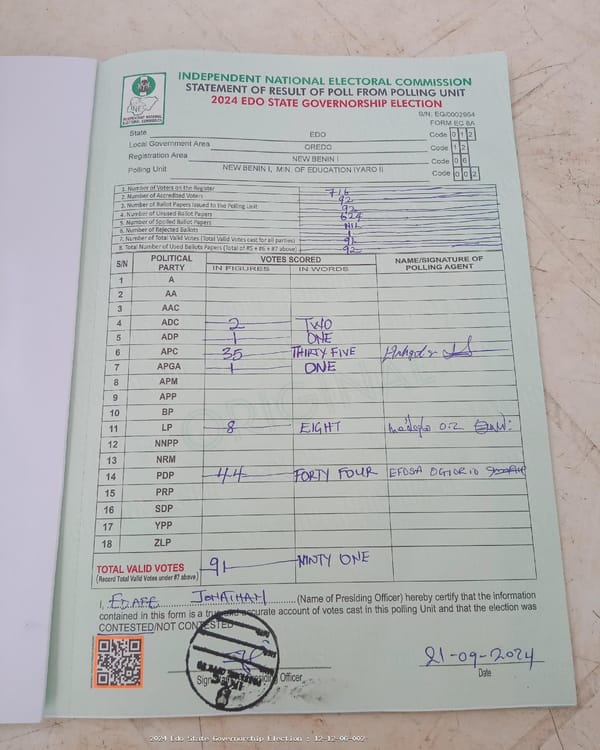 INDEPENDENT NATIONAL ELECTORAL COMMISSION
STATEMENT OF RESULT OF POLL FROM POLLING UNIT
2024 EDO STATE GOVERNORSHIP ELECTION
S/N: EG/0002954
FORM EC 8A
State EDO Code 0 1 2
Local Government Area OREDO Code 1 2
Registration Area NEW BENIN I Code 0 6
Polling Unit NEW BENIN I, MIN. OF EDUCATION IYARO II Code 0 0 2
1. Number of Voters on the Register 716
2. Number of Accredited Voters 92
3. Number of Ballot Papers Issued to the Polling Unit
4. Number of Unused Ballot Papers 624
5. Number of Spoiled Ballot Papers NIL
6. Number of Rejected Ballots 1
7. Number of Total Valid Votes (Total Valid Votes cast for all parties) 91
8. Total Number of Used Ballots Papers (Total of #5 + #6 + #7 above) 92
S/N POLITICAL PARTY VOTES SCORED NAME/SIGNATURE OF POLLING AGENT
IN FIGURES IN WORDS
1 A
2 AA
3 AAC
4 ADC 2 TWO
5 ADP 1 ONE
6 APC 35 THIRTY FIVE
7 APGA 1 ONE
8 APM
9 APP
10 BP
11 LP 8 EIGHT
12 NNPP
13 NRM
14 PDP 44 FORTY FOUR EFOSA OGIORIO
15 PRP
16 SDP
17 YPP
18 ZLP
TOTAL VALID VOTES 91 NINTY ONE
(Record Total Valid Votes under #7 above)
I, EDAFE JONATHAN (Name of Presiding Officer) hereby certify that the information
contained in this form is a true and accurate account of votes cast in this polling Unit and that the election was
CONTESTED/NOT CONTESTED
21-09-2024
Date
2024 Edo State Governorship Election : 12-12-06-002